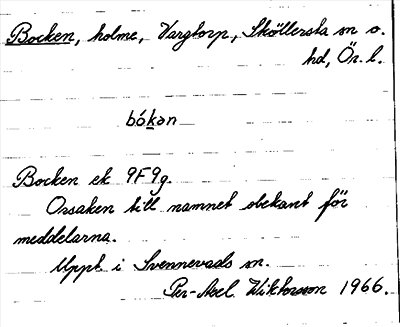 Bocken, holme, Vargtorp, Sköllersta sn o.
hd, Ör. l.
bókan
Bocken ek 9F9g.
Orsaken till namnet obekant för
meddelarna.
Uppt. i Svennevads sn.
Per-Axel Wiktorsson 1966.